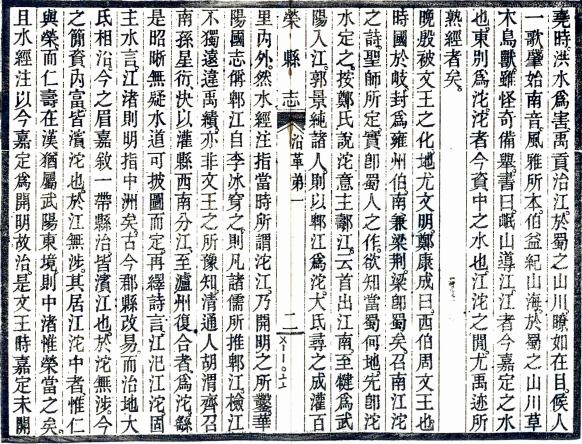 堯時洪水爲害禹貢治江於蜀之山川瞭如在目候人
一歌肇始南音風雅所本伯益紀山海於蜀之山川草
木鳥獸雖怪奇備舉書曰岷山導江江者今嘉定之水
也東別爲沱沱者今資中之水也江沱之閒尤禹迹所
熟經者矣
晚殷被文王之化地尤文明鄭康成曰西伯周文王也
時國於岐封爲雍州伯南兼梁荆梁卽蜀矣召南江沱
之詩聖師所定實卽蜀人之作欲知當蜀何地先卽沱
水定之按鄭氏說沱意主鄩江云首出江南至犍爲武
陽入江郭景純諸人則以郫江爲沱大氏尋之成灌百
榮縣志 沿革弟一 二
里內外然水經注指當時所謂沱江乃開明之所鑿華
陽國志偁郫江自李冰穿之則凡諸儒所推郫江檢江
不獨遠違禹績亦非文王之所豫知清通人胡渭齊召
南孫星衍快以灌縣西南分江至瀘州復合者爲沱繇
是昭晰無疑水道可披圖而定再繹詩言江汜江沱固
主水言江渚則明指中洲矣古今郡縣改易而治地大
氐相沿今之眉嘉敘一帶縣治皆濱江也於沱無涉今
之簡資內富皆濱沱也於江無涉其居江沱中者惟仁
與榮而仁壽在漢猶屬武陽東境則中渚惟榮當之矣
且水經注以今嘉定爲開明故治是文王時嘉定未開